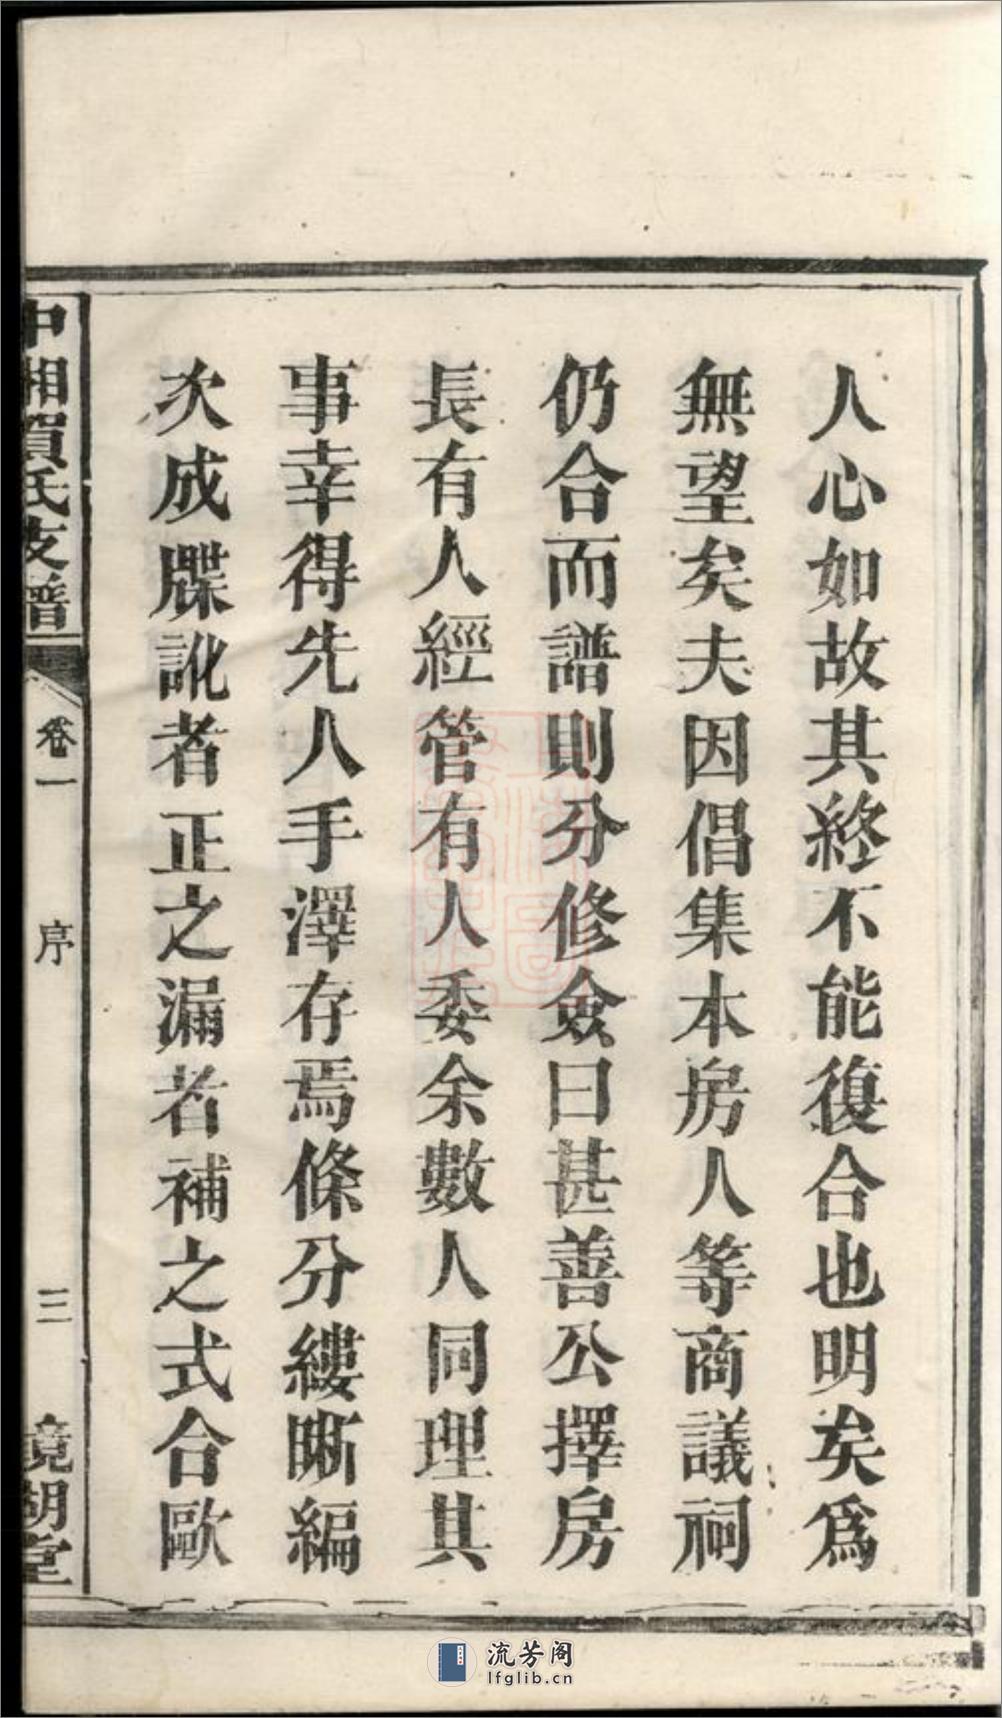 人心如故其終不能復合也明矣爲
無望矣夫因倡集本房人等商議祠
仍合而譜則分修僉曰甚善公擇房
長有人經管有人委余數人同理其
事幸得先人手澤存焉條分縷晰編
次成牒訛者正之漏者補之式合歐
中湘賀氏支譜
卷一
序
三
鏡湖堂
流芳阁
lfglib.cn